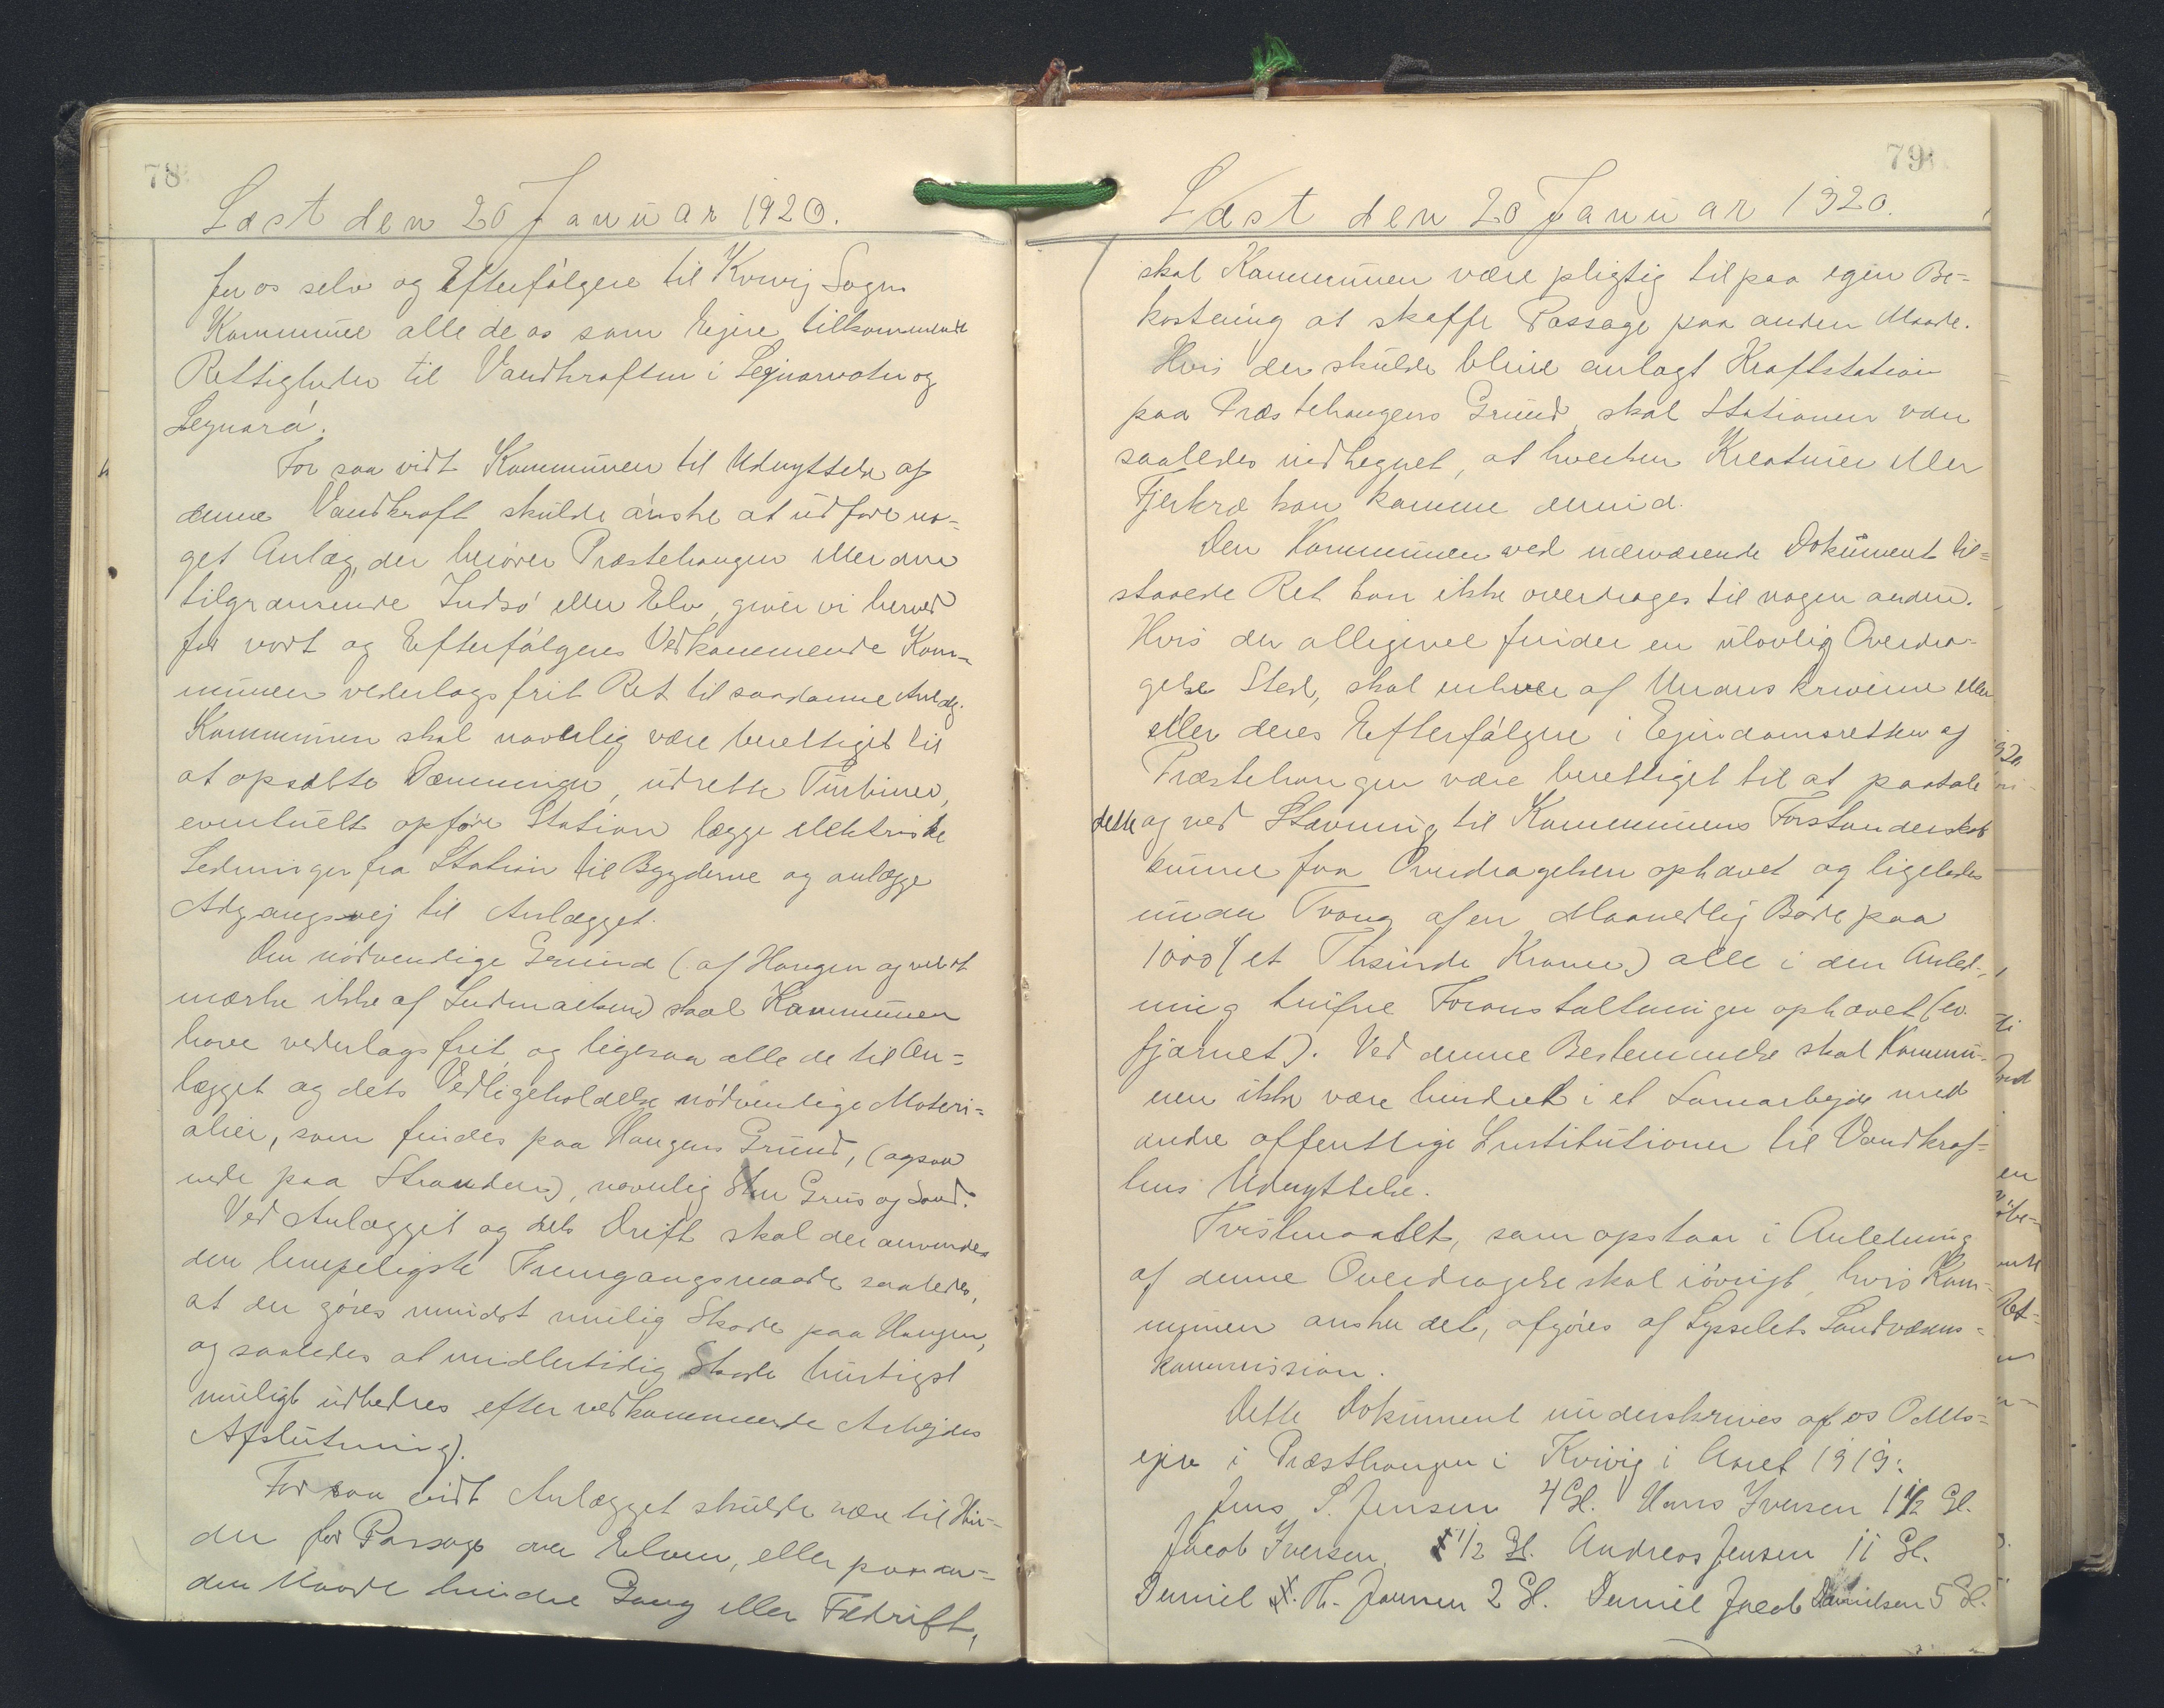 78
Læst den 20 Januar 1920.
for os selv og Efterfølgere til Kvivig Sogns
Kommune alle de os som Ejere tilkommende
Rettigheder til Vandkraften i Lejnarvatn og
Lejnará.
For saa vidt Kommunen til Udnyttelse af
denne Vandkraft skulde ønske at udføre no-
get Anlæg, der berører Præstehaugen eller den
tilgrænsende Indsø eller Elv, giver vi herved
for vort og Efterfølgeres Vedkommende Kom-
munen vederlagsfrit Ret til saadanne Anlæg.
Kommunen skal navnlig være berettiget til
at opsætte Dæmninger, udrette Turbiner,
eventuelt opføre Station lægge elektriske
Ledninger fra Station til Bygderne og anlægge
Adgangsvej til Anlægget.
Den nødvendige Grund (af Haugen og vel at
mærke ikke af Indmarken) skal Kommunen
have vederlagsfrit og ligesaa alle de til An-
lægget og dets Vedligeholdelse nødvendige Materi-
alier, som findes paa Haugens Grund, (ogsaa
nede paa Stranden), navnlig Sten Grus og Sand.
Ved Anlægget og dets Drift skal der anvendes
den lempeligste Fremgangsmaade saaledes,
at der gøres mindst mulig Skade paa Haugen,
og saaledes at midlertidig Skade hurtigst
muligt udbedres efter vedkommende Arbejdes
Afslutning).
For saa vidt Anlægget skulde være til Hin-
der for Passage over Elven, eller paa an-
den Maade hindre Gang eller Fædrift,
79
Læst den 20 Januar 1920.
skal Kommunen være pligtig til paa egen Be-
kostning at skaffe Passage paa anden Maade.
Hvis der skulde blive anlagt Kraftstation
paa Præstehaugens Grund skal Stationen være
saaledes indhegnet, at hverken Kreaturer eller
Fjerkræ kan komme derind.
Den Kommunen ved nærværende Dokument til-
staaede Ret kan ikke overdrages til nogen anden.
Hvis der alligevel finder en ulovlig Overdra-
gelse Sted, skal enhver af Underskriverne eller
eller deres Efterfølgere i Ejendomsretten af
Præstehaugen være berettiget til at paatale
dette og ved Stævning til Kommunens Forstanderskab
kunne faa Overdragelsen ophævet og ligeledes
under Tvang af en Maanedlig Bøde paa
1000 (et Thusinde Kroner) alle i den Anled-
ning trufne Foranstaltninger ophævet (ev.
fjærnet). Ved denne Bestemmelse skal Kommu-
nen ikke være hindret i et Samarbejde med
andre offentlige Institutioner til Vandkraf-
tens Udnyttelse.
Tvistmaalet, som opstaar i Anledning
af denne Overdragelse skal iøvrigt, hvis Kom-
munen ønsker det, afgøres af Sysselets Landvæsens-
kommission.
Dette Dokument underskrives af os Odels-
ejere i Præsthaugen i Kvivig i Aaret 1919:
Jens S. Jensen 4 Gl. Hans Iversen 1 1/2 Gl.
Jacob Iversen, 1/2 Gl. Andreas Jensen 11 Gl.
Daniel Th. Joensen 2 Gl. Daniel Jacob Danielsen 5 Gl.